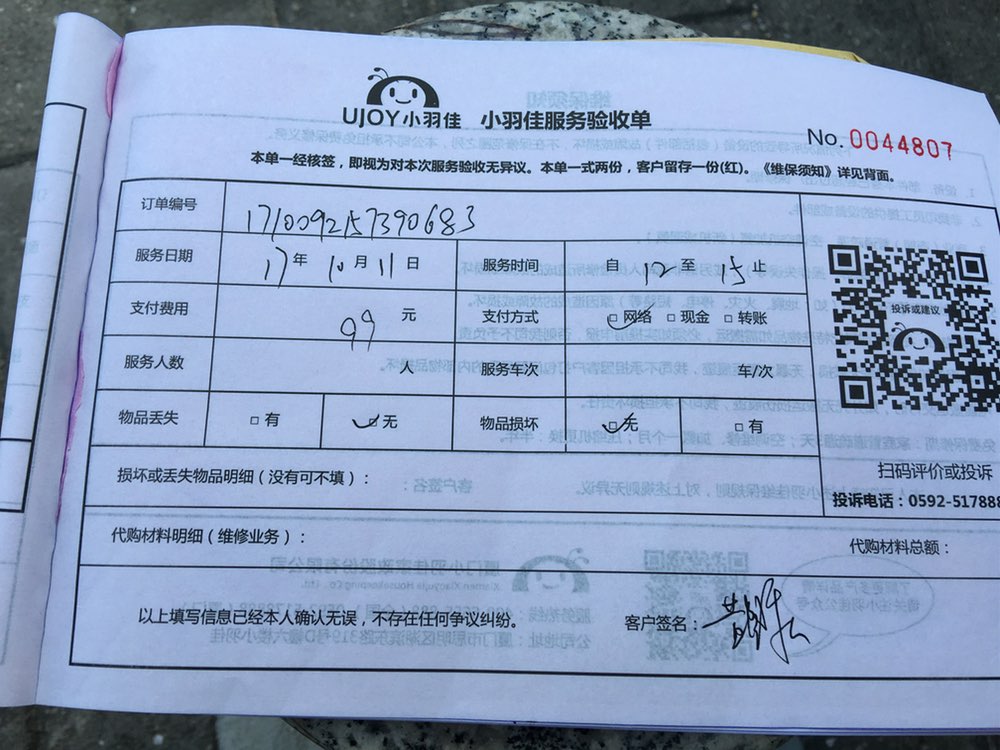 UJOY小羽佳 小羽佳服务验收单
No. 0044807
本单一经核签，即视为对本次服务验收无异议。本单一式两份，客户留存一份(红)。《维保须知》详见背面。
订单编号 1710092157390683
服务日期 17年 10月 11日 服务时间 自 12 至 15 止
支付费用 99 元 支付方式 □网络 □现金 □转账
服务人数 人 服务车次 车/次
物品丢失 □有 □无 物品损坏 □无 □有
投诉或建议
扫码评价或投诉
投诉电话：0592-517888
损坏或丢失物品明细（没有可不填）：
代购材料明细（维修业务）： 代购材料总额：
以上填写信息已经本人确认无误，不存在任何争议纠纷。 客户签名：